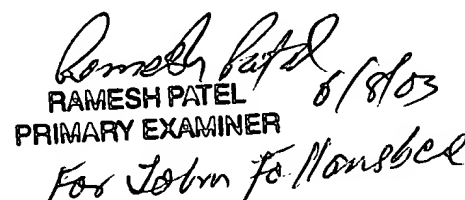 Ramesh Patel
RAMESH PATEL 6/8/03
PRIMARY EXAMINER
For John Follansbee